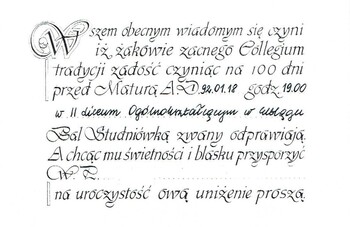 Wszem obecnym wiadomym się czyni
iż żakowie zacnego Collegium
tradycji zadość czyniąc na 100 dni
przed Maturą A.D. 20.01.18 godz. 19.00
w II Liceum Ogólnokształcącym w Elblągu
Bal Studniówką zwany odprawiają.
A chcąc mu świetności i blasku przysporzyć
W. P.
na uroczystość ową uniżenie proszą.